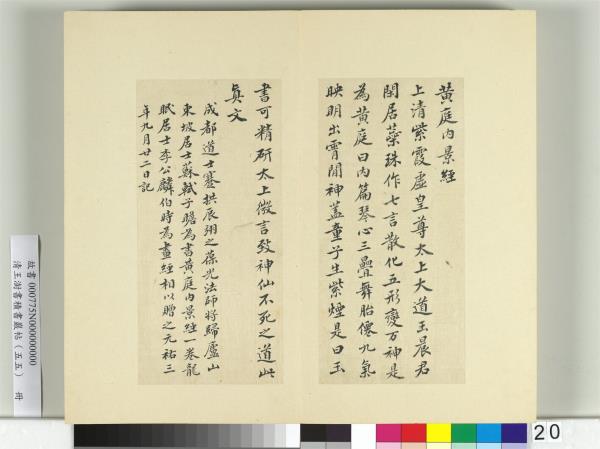 黃庭內景經
上清紫霞虛皇尊太上大道玉晨君
閑居蘂珠作七言散化五形變万神是
為黃庭曰內篇琴心三疊舞胎僊九氣
映明出霄間神蓋童子生紫煙是曰玉
書可精研太上微言致神仙不死之道此
真文
成都道士蹇拱辰翊之葆光法師將歸廬山
東坡居士蘇軾子瞻為書黃庭內景經一卷龍
眠居士李公麟伯時為畫經相以贈之元祐三
年九月廿二日記
故書 000775N000000000
清王澍書積書巖帖（五五） 冊
20